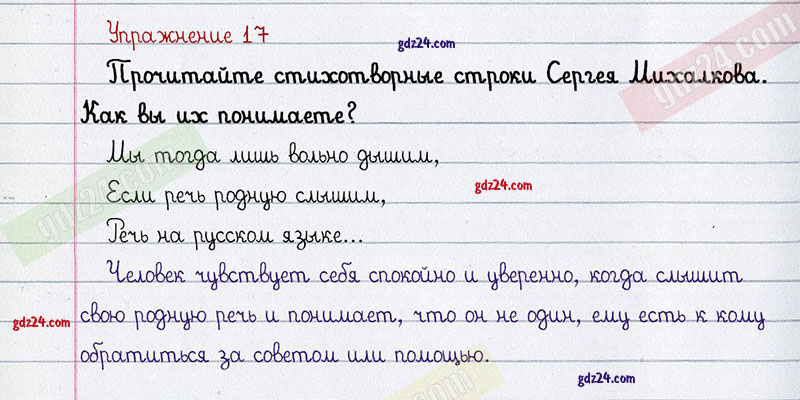 Упражнение 17
gdz24.com
Прочитайте стихотворные строки Сергея Михалкова.
gdz24.com
Как вы их понимаете?
Мы тогда лишь вольно дышим,
Если речь родную слышим,
gdz24.com
gdz24.com
Речь на русском языке...
Человек чувствует себя спокойно и уверенно, когда слышит
свою родную речь и понимает, что он не один, ему есть к кому
gdz24.com
обратиться за советом или помощью.
gdz24.com
gdz24.com